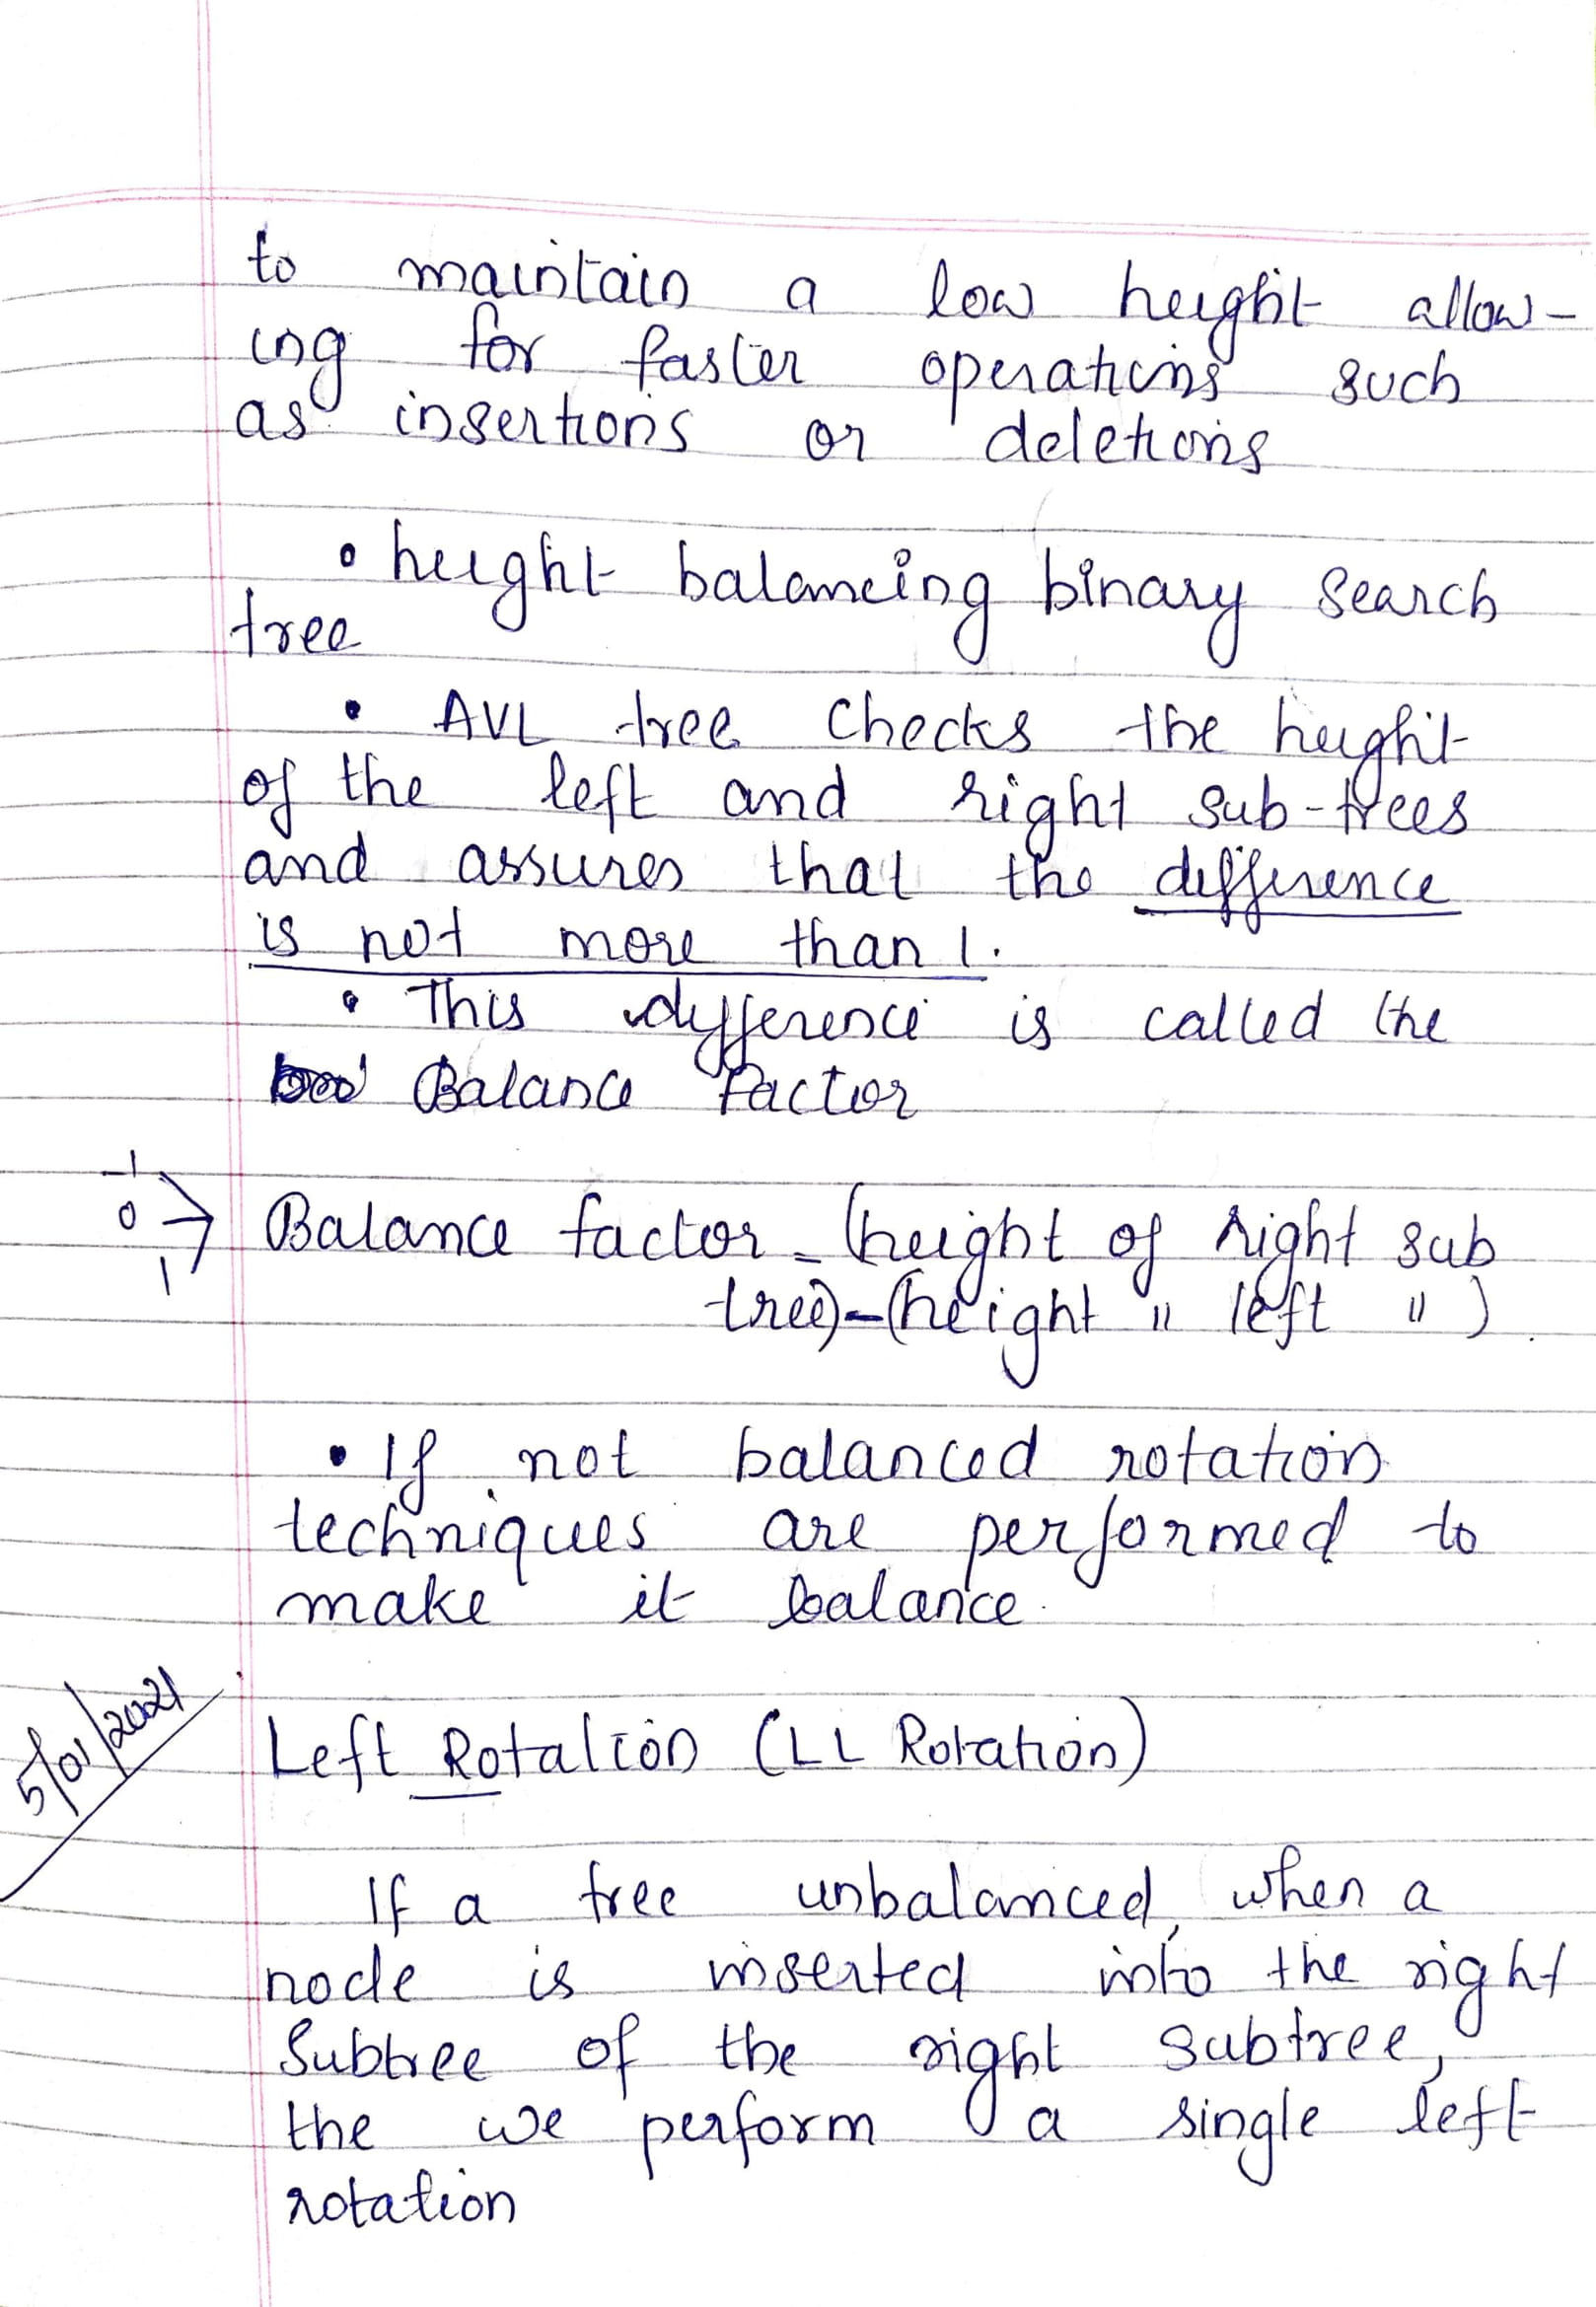 to maintain a low height allow-
ing for faster operations such
as insertions or deletions
• height balancing binary search
tree
• AVL tree checks the height
of the left and right sub-trees
and assures that the difference
is not more than 1.
• This difference is called the
Balance Factor
-1
0
1
Balance factor = (height of right sub
tree) - (height " left " )
• If not balanced rotation
techniques are performed to
make it balance.
5/01/2021
Left Rotation (LL Rotation)
If a tree unbalanced, when a
node is inserted into the right
Subtree of the right subtree,
the we perform a single left
rotation